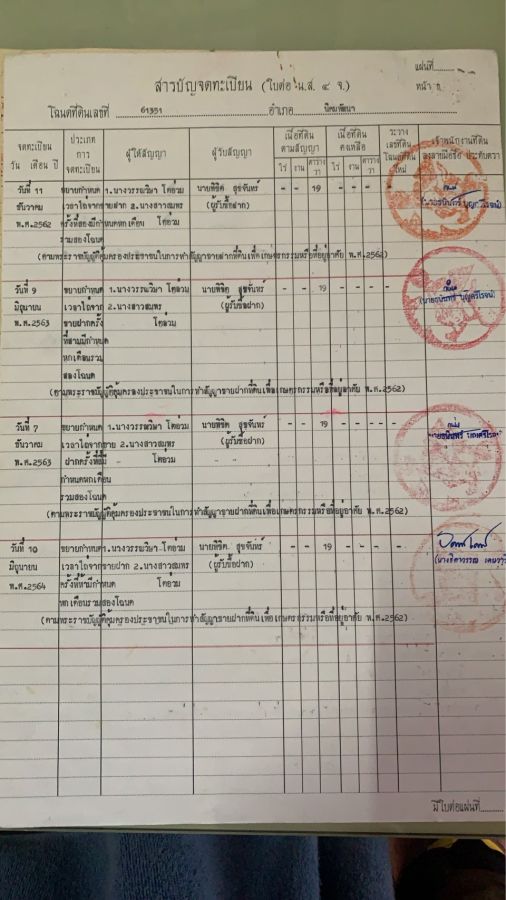 แผ่นที่
สารบัญจดทะเบียน (ใบต่อ น.ส. ๔ จ.)
หน้า
โฉนดที่ดินเลขที่ 61351 อำเภอ นิคมพัฒนา
จดทะเบียน วัน เดือน ปี
ประเภทการจดทะเบียน
ผู้ให้สัญญา
ผู้รับสัญญา
เนื้อที่ดินตามสัญญา
ไร่ งาน ตารางวา
เนื้อที่ดินคงเหลือ
ไร่ งาน ตารางวา
ระวาง เลขที่ดิน โฉนดที่ดินใหม่
เจ้าพนักงานที่ดิน ลงลายมือชื่อ ประทับตรา
วันที่ 11 ขยายกำหนด 1.นางวรรณวิมา โตอ่วม นายพิชิต สุขจันทร์ - - 19 - - - -
ธันวาคม เวลาไถ่จากขายฝาก 2.นางสาวสมพร (ผู้รับซื้อฝาก)
พ.ศ.2562 ครั้งที่สองมีกำหนดหกเดือน โตอ่วม
รวมสองโฉนด
(ตามพระราชบัญญัติคุ้มครองประชาชนในการทำสัญญาขายฝากที่ดินเพื่อเกษตรกรรมหรือที่อยู่อาศัย พ.ศ.2562)
วันที่ 9 ขยายกำหนด 1.นางวรรณวิมา โตอ่วม นายพิชิต สุขจันทร์ - - 19 - - - -
มิถุนายน เวลาไถ่จาก 2.นางสาวสมพร (ผู้รับซื้อฝาก)
พ.ศ.2563 ขายฝากครั้ง โตอ่วม
ที่สามมีกำหนด
หกเดือนรวม
สองโฉนด
(ตามพระราชบัญญัติคุ้มครองประชาชนในการทำสัญญาขายฝากที่ดินเพื่อเกษตรกรรมหรือที่อยู่อาศัย พ.ศ.2562)
วันที่ 7 ขยายกำหนด 1.นางวรรณวิมา โตอ่วม นายพิชิต สุขจันทร์ - - 19 - - - -
ธันวาคม เวลาไถ่จากขาย 2.นางสาวสมพร (ผู้รับซื้อฝาก)
พ.ศ.2563 ฝากครั้งที่สี่มี โตอ่วม
กำหนดหกเดือน
รวมสองโฉนด
(ตามพระราชบัญญัติคุ้มครองประชาชนในการทำสัญญาขายฝากที่ดินเพื่อเกษตรกรรมหรือที่อยู่อาศัย พ.ศ.2562)
วันที่ 10 ขยายกำหนด 1.นางวรรณวิมา โตอ่วม นายพิชิต สุขจันทร์ - - 19 - - - -
มิถุนายน เวลาไถ่จากขายฝาก 2.นางสาวสมพร (ผู้รับซื้อฝาก)
พ.ศ.2564 ครั้งที่ห้ามีกำหนด โตอ่วม
หกเดือนรวมสองโฉนด
(ตามพระราชบัญญัติคุ้มครองประชาชนในการทำสัญญาขายฝากที่ดินเพื่อเกษตรกรรมหรือที่อยู่อาศัย พ.ศ.2562)
มีใบต่อแผ่นที่